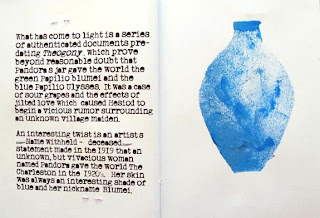 What has come to light is a series
of authenticated documents pre-
dating Theogony, which prove
beyond reasonable doubt that
Pandora's jar gave the world the
green Papilio blumei and the
blue Papilio Ulysses. It was a case
of sour grapes and the effects of
jilted love which caused Hesiod to
begin a vicious rumor surrounding
an unknown village maiden.
An interesting twist is an artist's
—Name withheld - deceased—
statement made in the 1919 that an
unknown, but vivacious woman
named Pandora gave the world The
Charleston in the 1920's. Her skin
was always an interesting shade of
blue and her nickname Blumei.